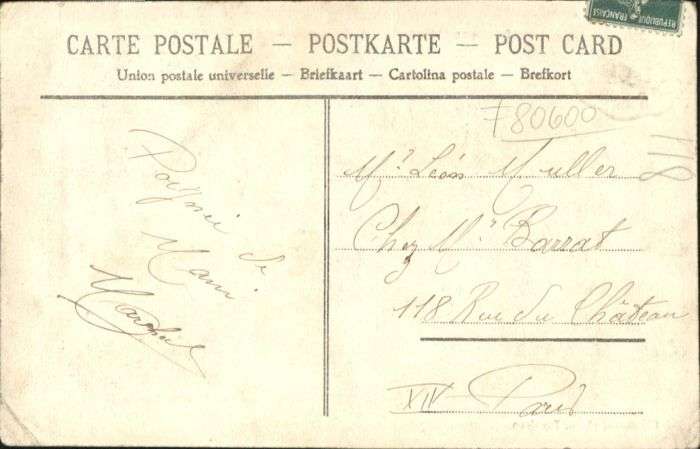 CARTE POSTALE — POSTKARTE — POST CARD
Union postale universelle — Briefkaart — Cartolina postale — Brefkort
REPUBLIQUE FRANÇAISE
F80600
118
Poignée de
Main
Mr Léon Muller
Chez Mr Barrat
118 Rue du Château
XIV Paris